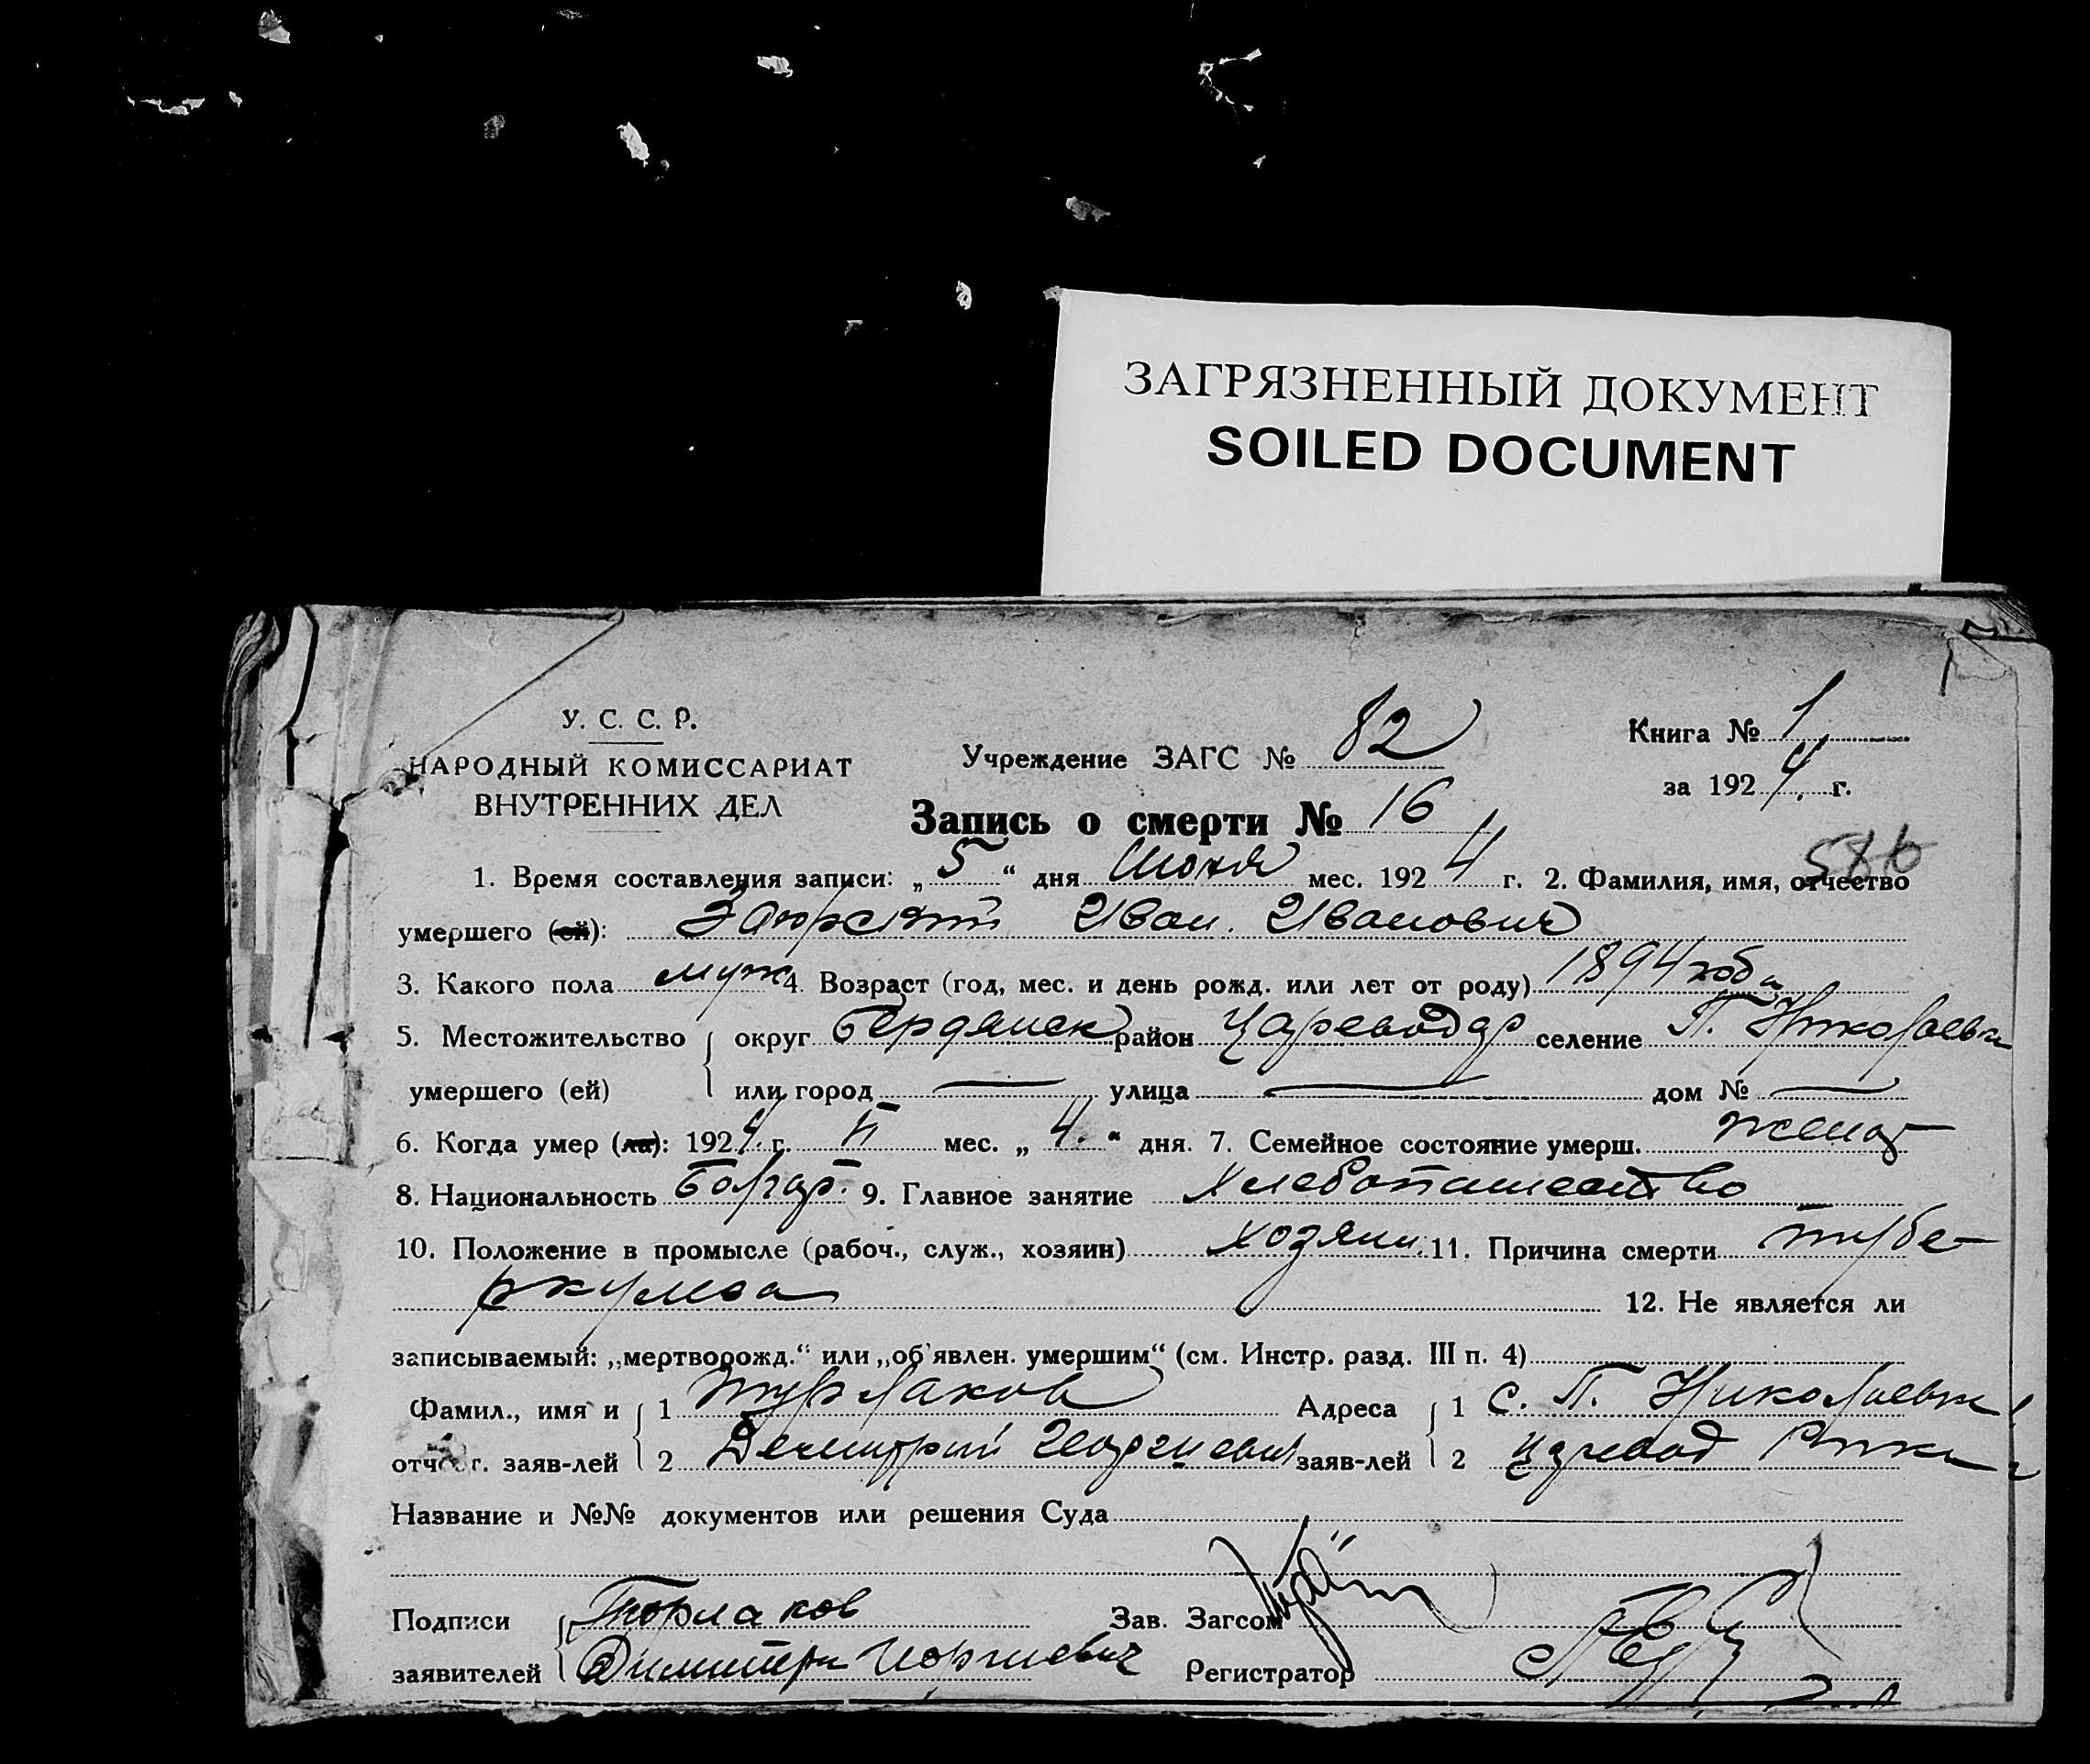 ЗАГРЯЗНЕННЫЙ ДОКУМЕНТ
SOILED DOCUMENT
У. С. С. Р.
НАРОДНЫЙ КОМИССАРИАТ
ВНУТРЕННИХ ДЕЛ
Учреждение ЗАГС № 82
Книга № 1
за 1924 г.
Запись о смерти № 16
586
1. Время составления записи: „5“ дня Июня мес. 1924 г. 2. Фамилия, имя, отчество
умершего (ей): Иван Иванович
3. Какого пола муж 4. Возраст (год, мес. и день рожд. или лет от роду) 1894 года
5. Местожительство округ Бердянск район Цареводар селение П. Николаевка
умершего (ей) или город — улица — дом № —
6. Когда умер (ла): 1924 г. мес. „4.“ дня. 7. Семейное состояние умерш. женат
8. Национальность Болгар. 9. Главное занятие Хлебопашество
10. Положение в промысле (рабоч., служ., хозяин) хозяин 11. Причина смерти тубе-
ркулоза 12. Не является ли
записываемый: „мертворожд.“ или „об'явлен. умершим“ (см. Инстр. разд. III п. 4)
Фамил., имя и 1 Турлаков Адреса 1 с. П. Николаевка
отчест. заяв-лей 2 Демитрий Георгиевич заяв-лей 2 Царевод
Название и №№ документов или решения Суда
Подписи Торлаков Зав. Загсом
заявителей Димитри Георгиевич Регистратор